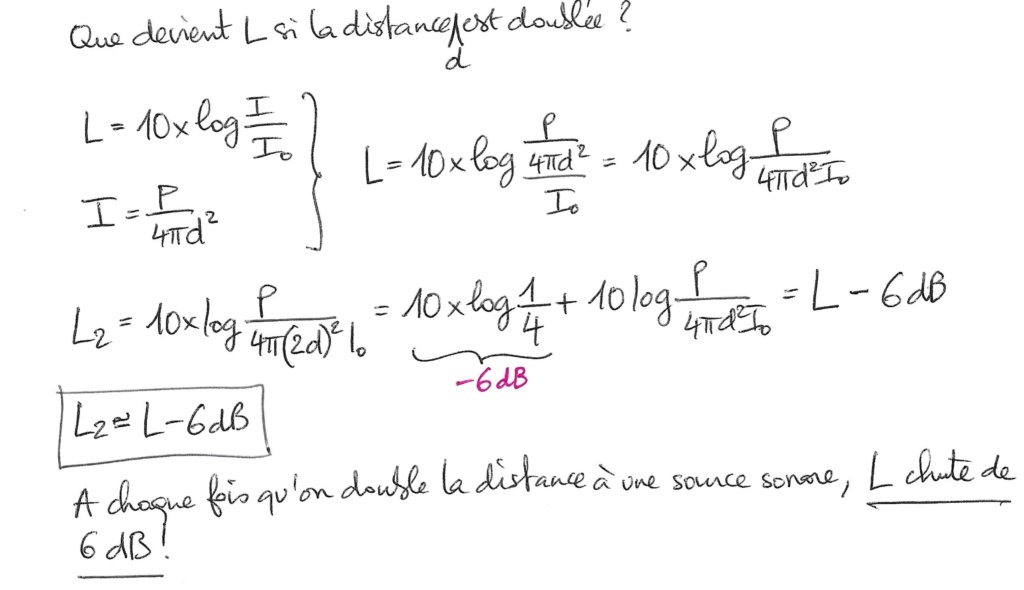 Que devient L si la distance d est doublée ?
L = 10 x log I/I₀
I = P/4πd²
} L = 10 x log (P/4πd²)/I₀ = 10 x log P/4πd²I₀
L₂ = 10 x log P/4π(2d)² I₀ = 10 x log 1/4 + 10 log P/4πd²I₀ = L - 6 dB
-6 dB
L₂ ≃ L - 6 dB
A chaque fois qu'on double la distance à une source sonore, L chute de
6 dB !